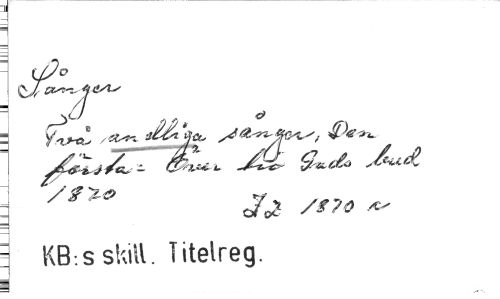 Sånger
Två andliga sånger, Den
första: Över tio Guds bud
1870
1870
KB:s skill. Titelreg.